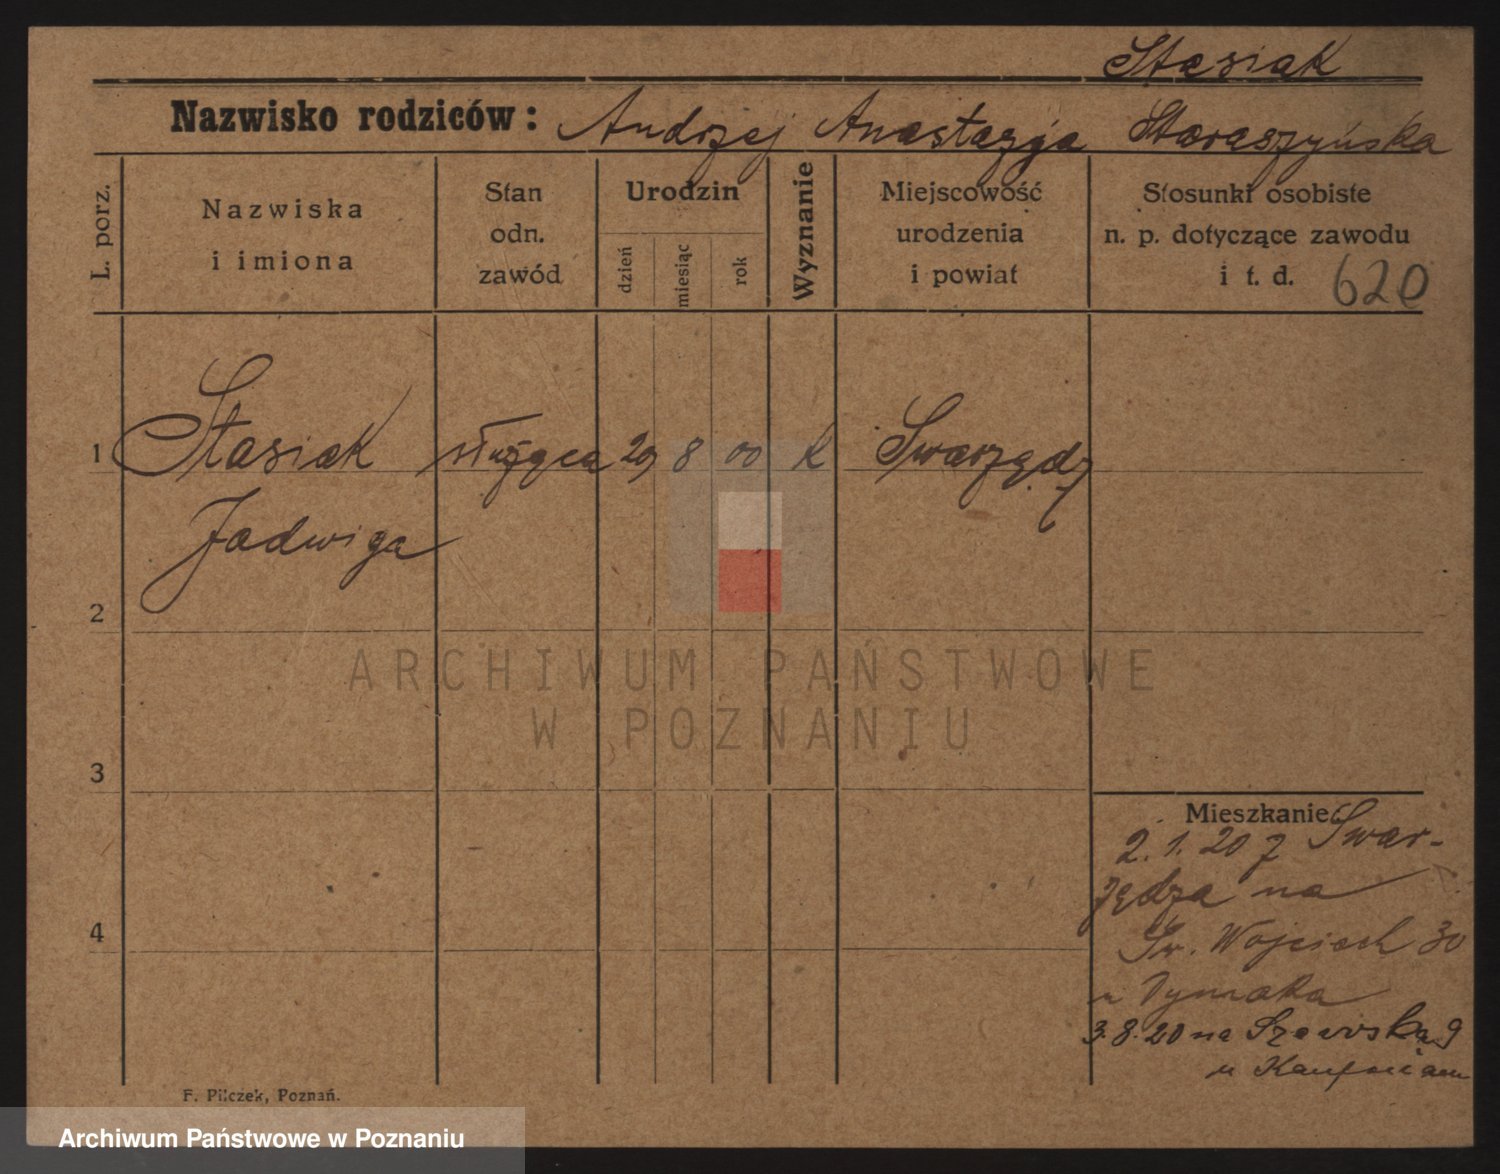 Stasiak
Nazwisko rodziców: Andrzej Anastazja Staraszyńska
L. porz.
Nazwiska
i imiona
Stan
odn.
zawód
Urodzin
dzień
miesiąc
rok
Wyznanie
Miejscowość
urodzenia
i powiat
Stosunki osobiste
n. p. dotyczące zawodu
i t. d.
620
1 Stasiak służąca 29 8 00 K Swarzędz
Jadwiga
2
3
4
ARCHIWUM PAŃSTWOWE
W POZNANIU
Mieszkanie:
2.1.20 z Swar-
zędza na
Św. Wojciech 30
u
3.8.20 na 9
u
F. Pilczek, Poznań.
Archiwum Państwowe w Poznaniu